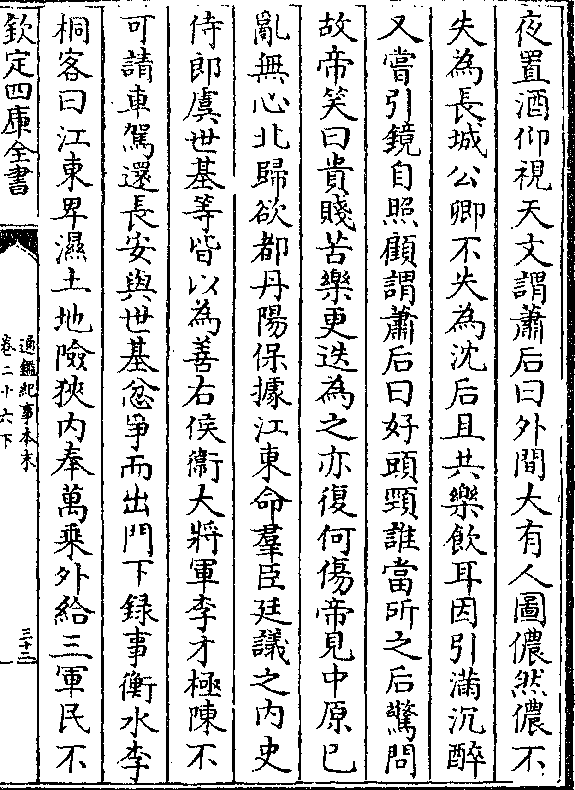 夜置酒仰視天文謂蕭后曰外間大有人圖儂然儂不
失為長城公卿不失為沈后且共樂飲耳因引滿沉醉
又嘗引鏡自照顧謂蕭后曰好頭頸誰當斫之后驚問
故帝笑曰貴賤苦樂更迭為之亦復何傷帝見中原已
亂無心北歸欲都丹陽保據江東命羣臣廷議之内史
侍郎虞世基等皆以為善右候衛大將軍李才極陳不
可請車駕還長安與世基忿爭而出門下録事衡水李
桐客曰江東卑濕土地險狹内奉萬乘外給三軍民不
欽定四庫全書
通鑑紀事本末
卷二十六下
三十二